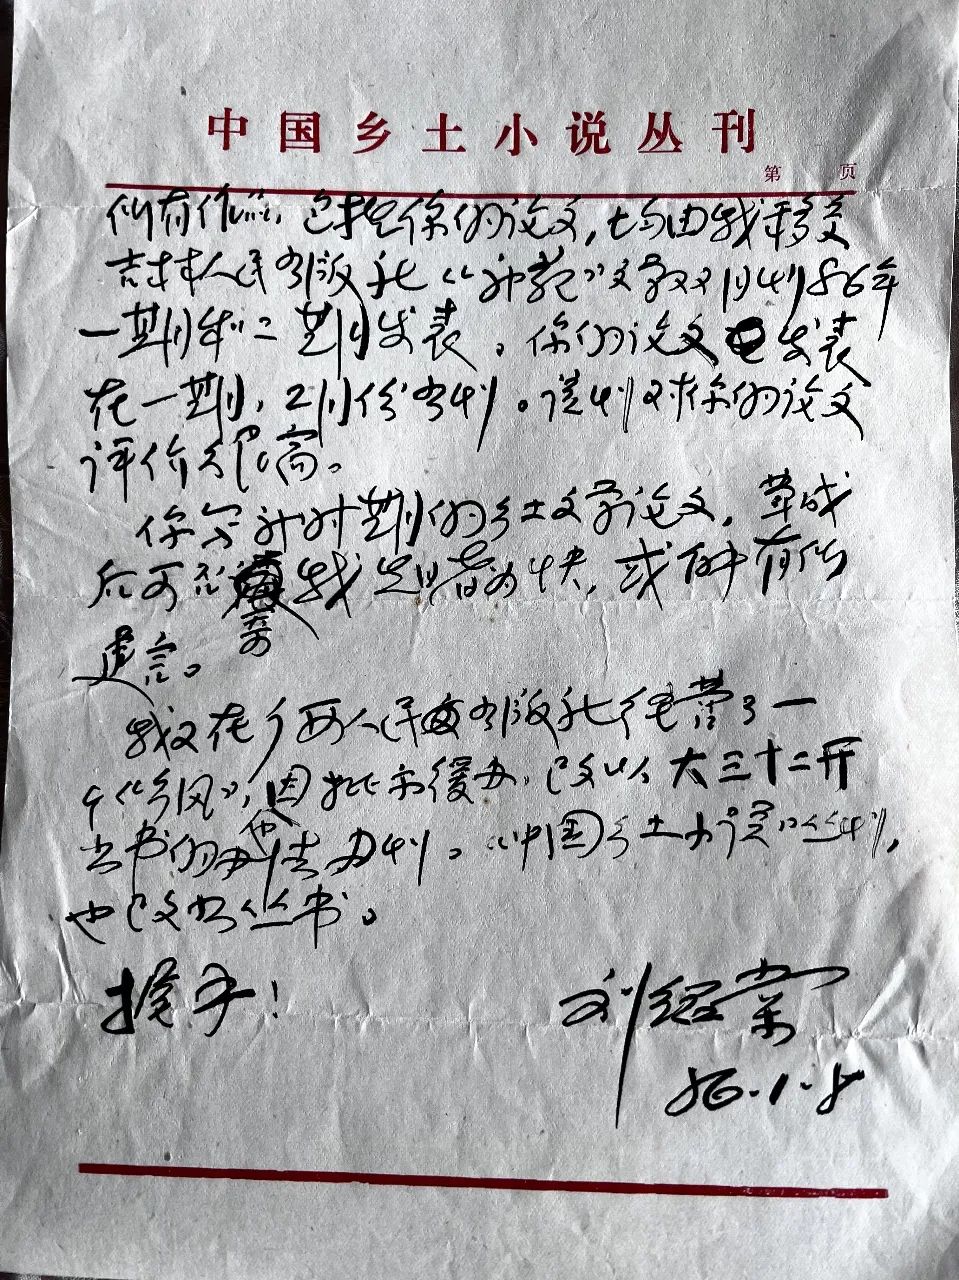 中国乡土小说丛刊
第 页
所有作品,包括你的论文,均由我移交
吉林人民出版社《》文学双月刊86年
一期和二期发表。你的论文已发表
在一期,2月份出刊。该刊对你的论文
评价很高。
你写新时期的乡土文学论文,草成
后可寄我先睹为快,或能有所
建言。
我又在广西人民出版社经营了一
个《乡风》,因批示缓办,已改以大三十二开
书的办法办刊。《中国乡土小说》丛刊,
也已改出丛书。
握手!
刘绍棠
86.1.8